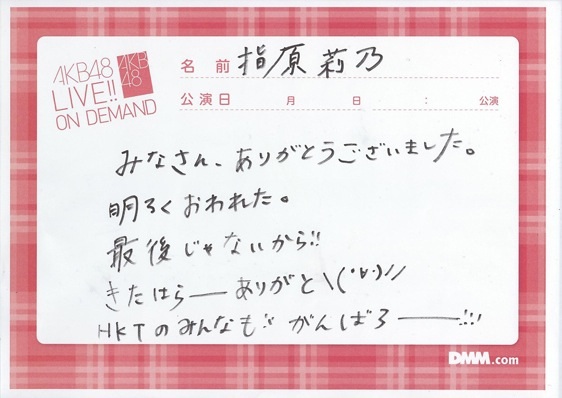 AKB48
LIVE!!
ON DEMAND
AKB
48
名前 指原莉乃
公演日 月 日 : 公演
みなさん、ありがとうございました。
明るくおわれた。
最後じゃないから!!
きたはらーありがと\(･∀･)//
HKTのみんなも!! がんばろー!!!
DMM.com